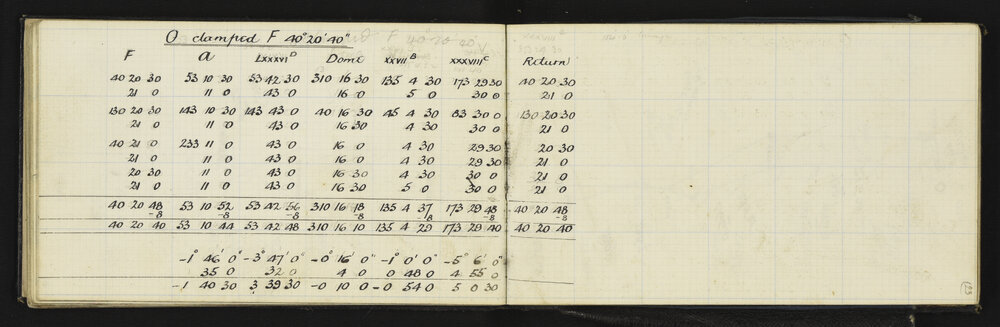 O clamped F 40° 20' 40"
F a LXXXVI D Dome XXVII B XXXVIII C Return
40 20 30 53 10 30 53 42 30 310 16 30 135 4 30 173 29 30 40 20 30
21 0 11 0 43 0 16 0 5 0 30 0 21 0
130 20 30 143 10 30 143 43 0 40 16 30 45 4 30 83 30 0 130 20 30
21 0 11 0 43 0 16 30 4 30 30 0 21 0
40 21 0 233 11 0 43 0 16 0 4 30 29 30 20 30
21 0 11 0 43 0 16 0 4 30 29 30 21 0
20 30 11 0 43 0 16 30 4 30 30 0 21 0
21 0 11 0 43 0 16 30 5 0 30 0 21 0
40 20 48 53 10 52 53 42 56 310 16 18 135 4 37 173 29 48 40 20 48
-8 -8 -8 -8 -8 -8 -8
40 20 40 53 10 44 53 42 48 310 16 10 135 4 29 173 29 40 40 20 40
-1° 46' 0" -3° 47' 0" -0° 16' 0" -1° 0' 0" -5° 6' 0"
35 0 32 0 4 0 0 48 0 4 55 0
-1 40 30 3 39 30 -0 10 0 -0 54 0 5 0 30